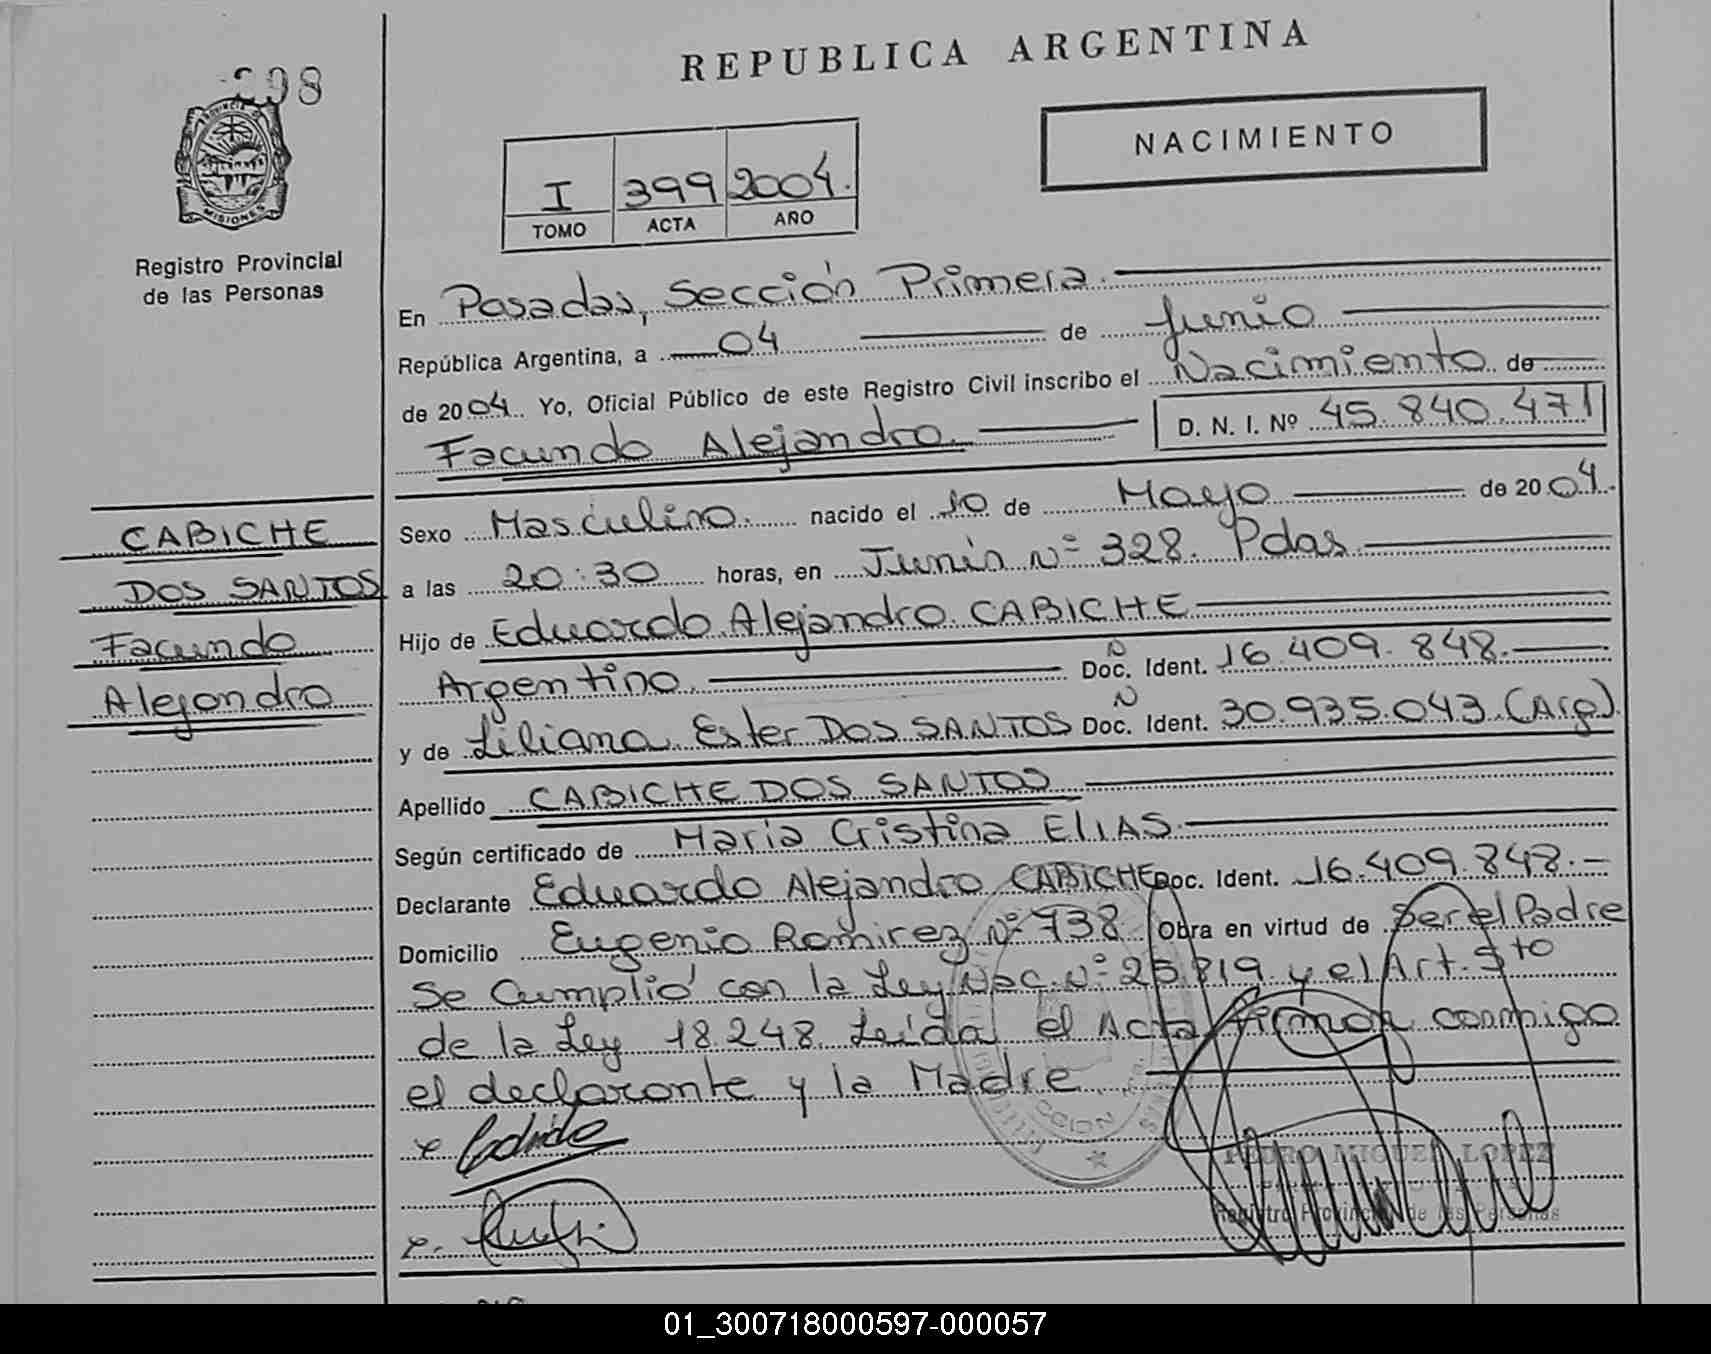 298
PROVINCIA DE
MISIONES
Registro Provincial
de las Personas
REPUBLICA ARGENTINA
NACIMIENTO
I 399 2004.
TOMO ACTA AÑO
En Posadas, Sección Primera.
República Argentina, a 04 de Junio
de 2004. Yo, Oficial Público de este Registro Civil inscribo el Nacimiento de
Facundo Alejandro. D. N. I. Nº 45.840.471
CABICHE
DOS SANTOS
Facundo
Alejandro
Sexo Masculino. nacido el 10 de Mayo de 2004.
a las 20:30 horas, en Junín Nº 328. Pdas.
Hijo de Eduardo Alejandro CABICHE
Argentino. Doc. Ident. 16.409.848.
y de Liliana Ester DOS SANTOS Doc. Ident. 30.935.043.(Arg).
Apellido CABICHE DOS SANTOS
Según certificado de María Cristina ELIAS.
Declarante Eduardo Alejandro CABICHE Doc. Ident. 16.409.848.-
Domicilio Eugenio Ramirez Nº 738 Obra en virtud de Ser el Padre
Se Cumplió con la Ley Nac. Nº 25.819 y el Art. 5to
de la Ley 18.248. Leída el Acta firman conmigo
el declarante y la Madre.
PEDRO MIGUEL LOPEZ
Registro Provincial de las Personas
01_300718000597-000057